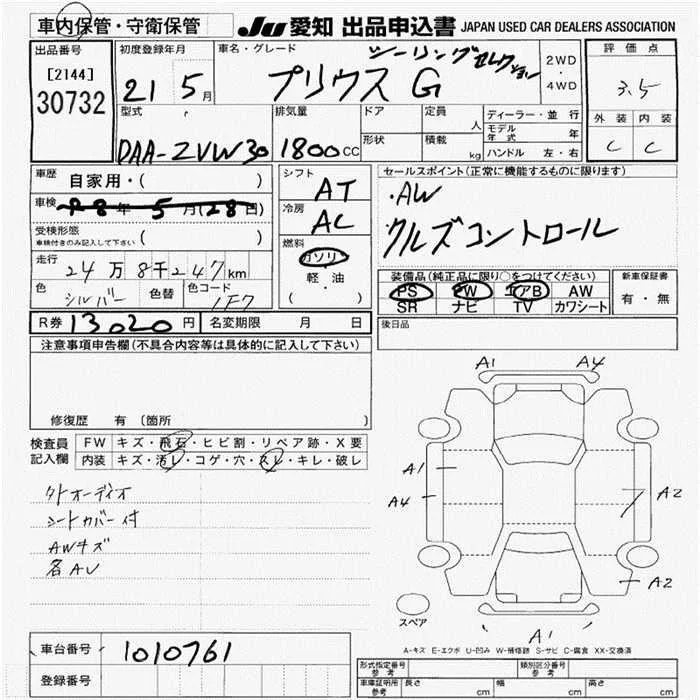 車内保管・守衛保管
JU 愛知 出品申込書 JAPAN USED CAR DEALERS ASSOCIATION
出品番号
[2144]
30732
初度登録年月
21 5月
車名・グレード
ツーリングセレクション
プリウス G
2WD
・
4WD
評価点
3.5
外装 内装
C C
型式
DAA-ZVW30
排気量
1800cc
ドア
形状
定員
人
積載
kg
ディーラー・並行
モデル年式 年
ハンドル 左・右
車歴 自家用・( )
車検 年5月(28日)
受検形態
車検付きのみ記入して下さい ( )
走行 24万8千247km
色 シルバー 色替 色コード 1F7
シフト
AT
冷房
AC
燃料
ガソリン
軽・油
( )
セールスポイント(正常に機能するものに限ります)
・AW
クルズコントロール
装備品(純正品に限り○をつけてください)
PS PW エアB AW
SR ナビ TV カワシート
新車保証書
有・無
R券 13020円 名変期限 月 日
後日品
注意事項申告欄(不具合内容等は具体的に記入して下さい)
修復歴 有 〔箇所
検査員
記入欄
FW キズ・飛石・ヒビ割・リペア跡・X要
内装 キズ・汚レ・コゲ・穴・スレ・キレ・破レ
外オーディオ
シートカバー付
AWキズ
各AU
A1 A4
A1
A4
A2
A2
A1
スペア
A-キズ E-エクボ U-凹み W-補修跡 S-サビ C-腐食 XX-交換済
車台番号 1010761
登録番号
形式指定番号
参考
類別区分番号
参考
車庫証明用
参考
長さ cm 幅 cm 高さ cm